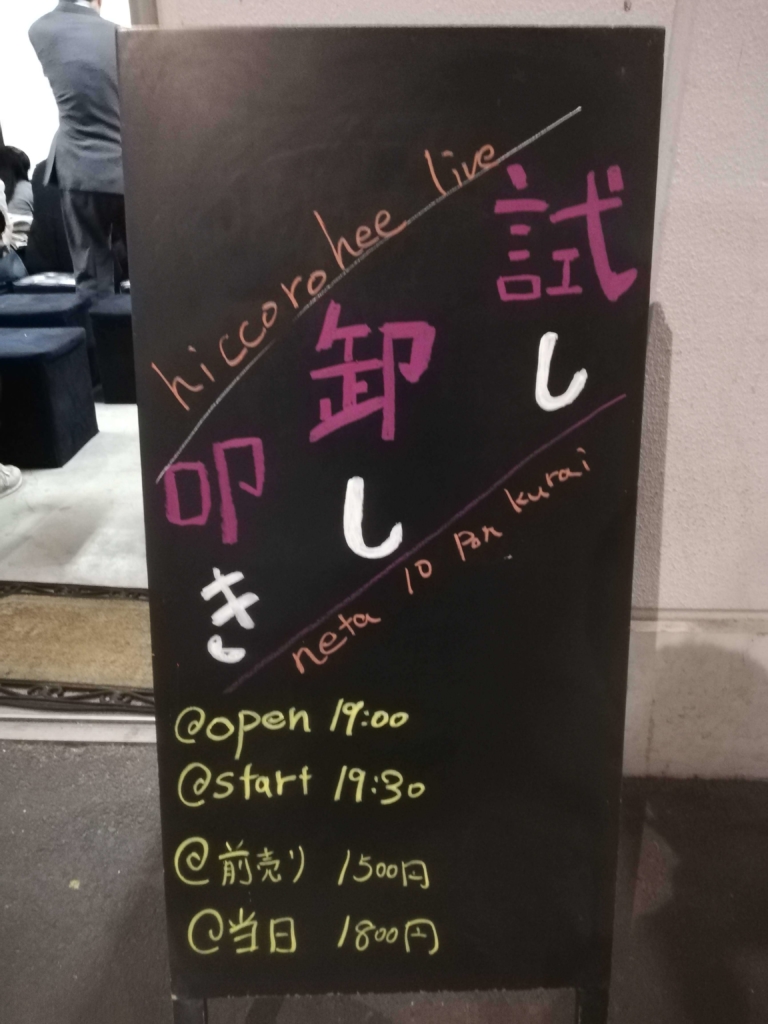 hiccorohee live
試し
卸し
叩き
neta 10 pon kurai
@open 19:00
@start 19:30
@前売り 1500円
@当日 1800円